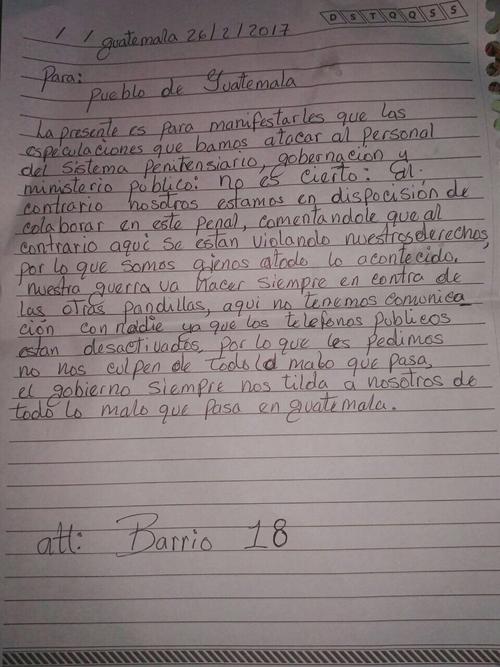 D S T Q Q S S
/ / guatemala 26/2/2017
Para:
Pueblo de Guatemala
La presente es para manifestarles que las
especulaciones que bamos atacar al personal
del sistema penitensiario, gobernacion y
ministerio publico: no es cierto: al.
contrario nosotros estamos en dispocisión de
colaborar en este penal, comentandole que al
contrario aqui se estan violando nuestros derechos,
por lo que somos ajenos atodo lo acontecido.
nuestra guerra va hacer siempre en contra de
las otras pandillas, aqui no tenemos comunica
ción con nadie ya que los telefonos publicos
estan desactivados, por lo que les pedimos
no nos culpen de todo lo malo que pasa,
el gobierno siempre nos tilda a nosotros de
todo lo malo que pasa en guatemala.
att: Barrio 18